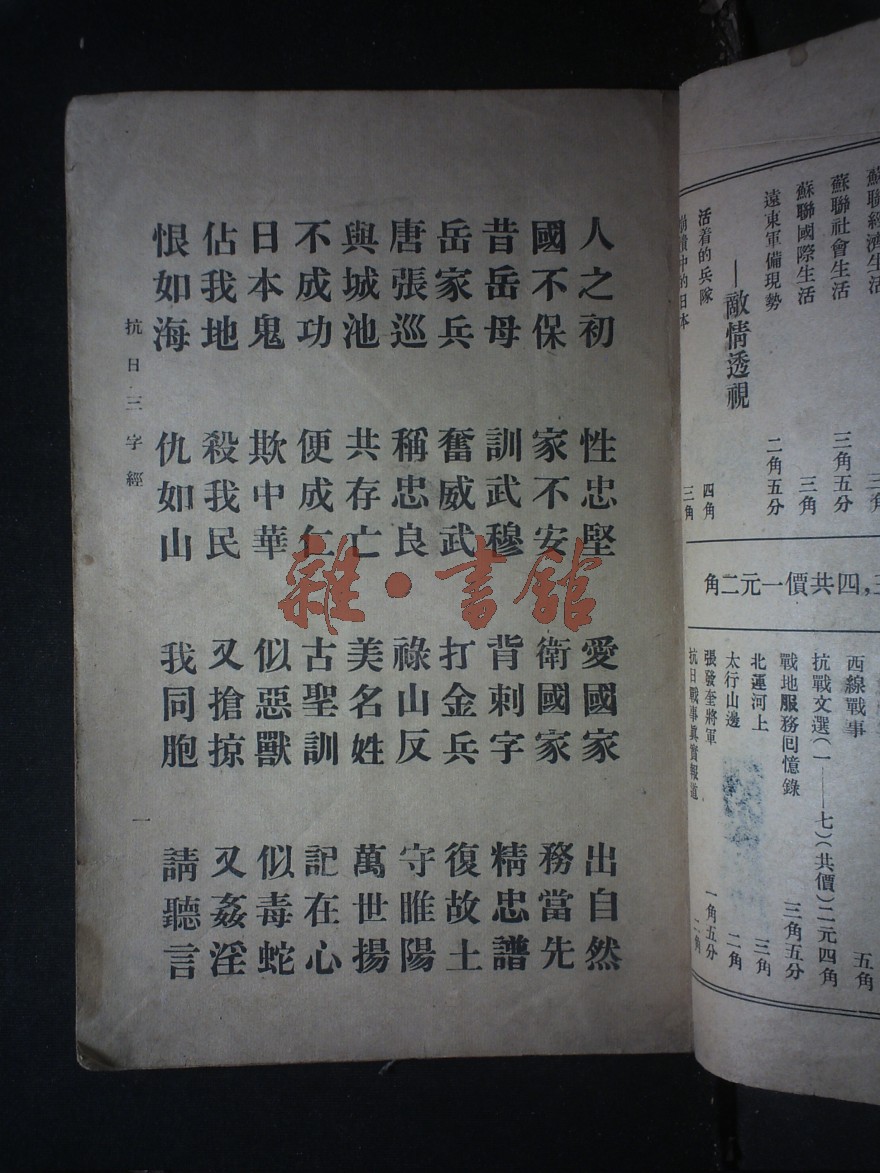 蘇聯經濟生活
蘇聯社會生活 三角五分
蘇聯國際生活 三角
遠東軍備現勢 二角五分
—敵情透視
活着的兵隊 四角
崩潰中的日本 三角
四共價一元二角
西線戰事 五角
抗戰文選(一——七)(共價)二元四角
戰地服務囘憶錄 三角五分
北運河上 三角
太行山邊 二角
張發奎將軍 一角五分
抗日戰事眞實報道 二角
人之初 性忠堅 愛國家 出自然
國不保 家不安 衛國家 務當先
昔岳母 訓武穆 背刺字 精忠譜
岳家兵 奮威武 打金兵 復故土
唐張巡 稱忠良 祿山反 守睢陽
與城池 共存亡 美名姓 萬世揚
不成功 便成仁 古聖訓 記在心
日本鬼 欺中華 似惡獸 似毒蛇
佔我地 殺我民 又搶掠 又姦淫
恨如海 仇如山 我同胞 請聽言
抗日三字經 一
雜·書館